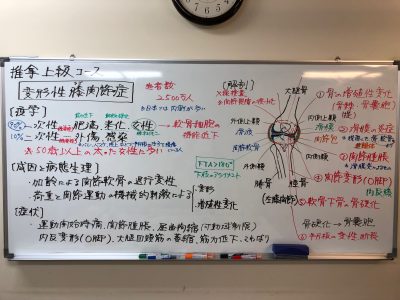 推拿上級コース
変形性膝関節症
患者数
2,500万人
◎日本では内側が多い
[疫学]
90% 一次性 肥満、老化、女性 → 軟骨細胞の
機能低下
10% 二次性 外傷、感染
◎50歳以上の太った女性に多い
[成因と病態生理]
・加齢による関節軟骨の退行変性
・荷重と関節運動の機械的刺激による
変形
増殖性変化
[症状]
・運動開始時痛、関節腫脹、屈曲拘縮(可動域制限)
内反変形(O脚)、大腿四頭筋の萎縮、筋力低下、こわばり
[解剖]
X線検査
◎関節裂隙の狭小化
大腿骨
外側上顆
滑液
関節軟骨
外側半月
内側上顆
滑膜
関節包
内側半月
下肢のアライメント
腓骨
脛骨
(左膝関節)
①骨の増殖性変化
(骨棘・骨嚢胞)
②滑膜の炎症
③関節腫脹
④関節変形(O脚)
内反膝
⑤軟骨下骨の骨硬化
骨硬化→骨嚢胞
⑥半月板の変性断裂